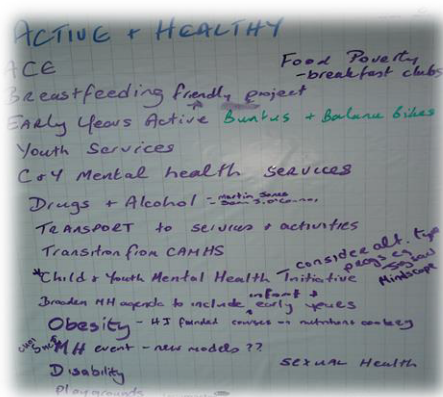 ACTIVE + HEALTHY
ACE
Food Poverty
- breakfast clubs
Breastfeeding friendly project
EARLY Years Active Buntus + Balance Bikes
Youth Services
C+Y Mental health services
Drugs + Alcohol -
TRANSPORT to services + activities
Transition from CAMHS
consider alt. type
progs eg
Mindscape
*Child + Youth Mental Health Initiative
Broaden MH agenda to include infant + early years
Obesity - HI funded courses on nutritions cookery
MH event - new models ??
SEXUAL Health
Disability
Playgrounds